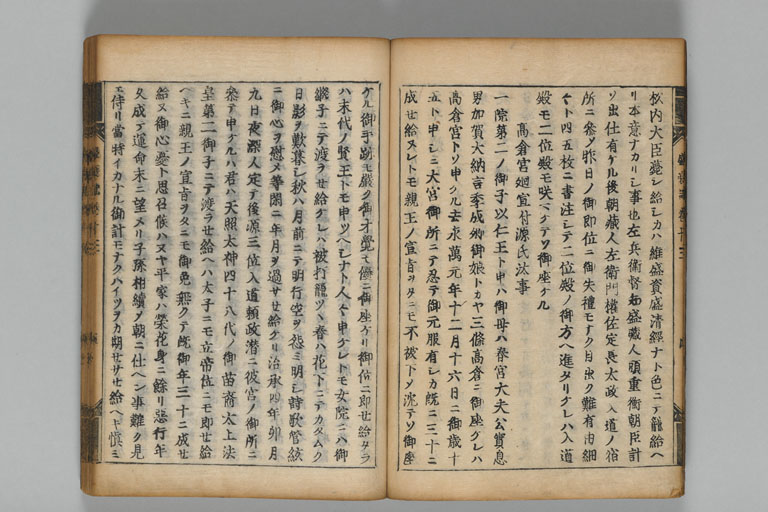 松内大臣薨シ給シカハ維盛資盛清經ナト色ニテ籠給ヘ
リ本意ナカリシ事也左兵衛督知盛藏人頭重衡朝臣計
ソ出仕有ケル後朝藏人左衛門權佐定長太政入道ノ宿
所ニ參リ昨日ノ御即位ニ御失禮モナク目出ク難有由細
々ト四五枚ニ書注シテ二位殿ノ御方ヘ進タリケレハ入道
殿モ二位殿モ咲ヘクテソ御座ケル
高倉宮廻宣付源氏汰事
一院第二ノ御子以仁王ト申ハ御母ハ春宮大夫公實息
男加賀大納言季成卿御娘トカヤ三條高倉ニ御座ケレハ
高倉宮トソ申ケル去永萬元年十二月十六日ニ御歳十
五ト申シニ大宮御所ニテ忍テ御元服有シカ既ニ三十ニ
成セ給ヌレトモ親王ノ宣旨ヲタニモ不被下メ沈テソ御座
ケル御手跡モ嚴ク御才覺モ優ニ御座ケリ御位ニ即セ給タラ
ハ末代ノ賢王トモ申ツヘシナト人々申ケレトモ女院ニハ御
繼子ニテ渡ラセ給ケレハ被打籠ツヽ春ハ花ノ下ニテカタムク
日影ヲ歎暮シ秋ハ月前ニテ明行空ヲ怨ミ明シ詩歌管絃
ニ御心ヲ慰メ等閑ニ年月ヲ過サセ給ケリ治承四年卯月
九日夜深人定テ後源三位入道頼政潜ニ彼宮ノ御所ニ
參テ申ケルハ君ハ天照太神四十八代ノ御苗裔太上法
皇第二御子ニテ渡ラセ給ヘハ太子ニモ立帝位ニモ即セ給
ヘキニ親王ノ宣旨ヲタニモ御免無クテ既御年三十ニ成セ
給ヌ御心憂ト思召候ハヌヤ平家ハ榮花身ニ餘リ惡行年
久成テ運命末ニ望メリ子孫相續ノ朝ニ仕ヘン事難ク見
エ侍リ當時イカナル御計モナクハイツヲカ期セサセ給ヘキ慎ミ